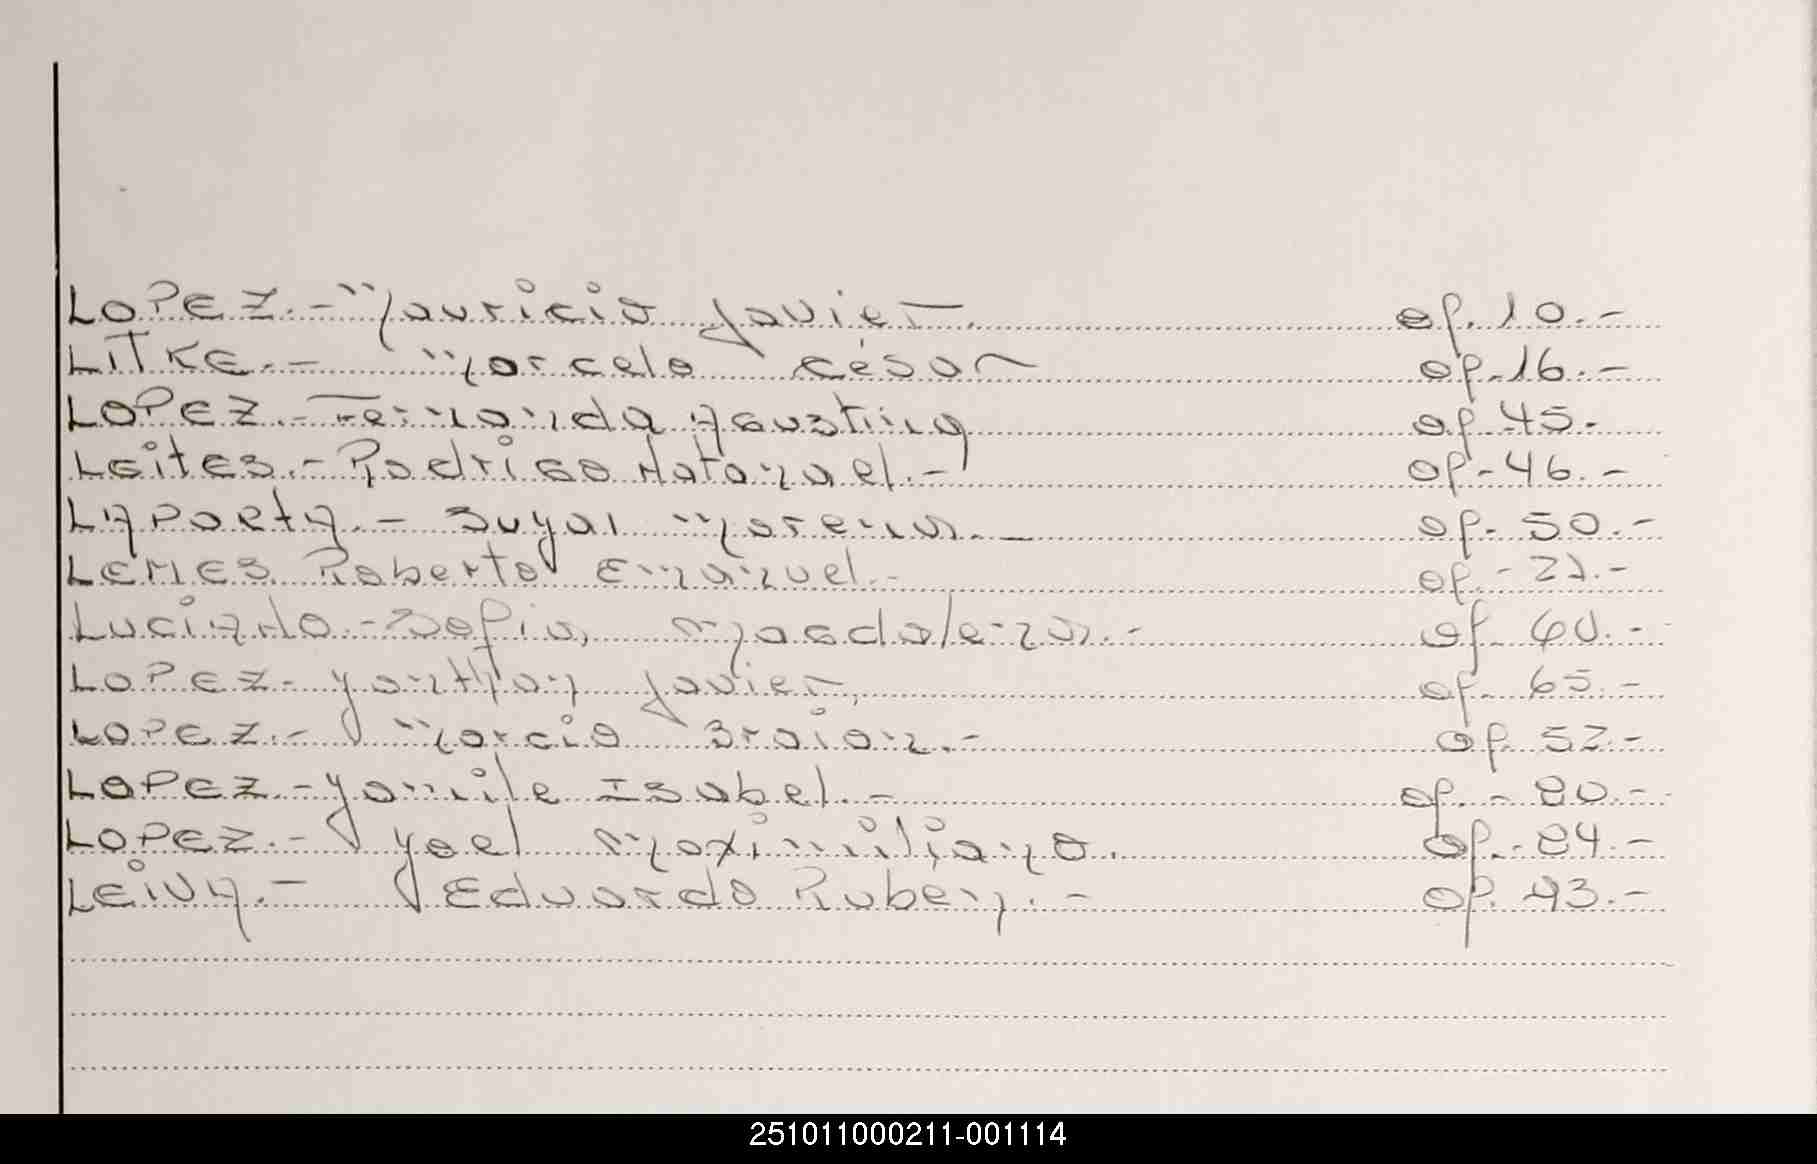 LOPEZ.- Mauricio Javier. of. 10.-
LITKE.- Marcelo César of-16.-
LOPEZ.- Fernanda Agustina of 45.-
Leites.- Rodrigo Natanael.- of-46.-
LAPOETA.- Suyai Morena.- of- 50.-
LEMES Roberto Emanuel.- of.-22.-
LUCIANO.- Sofia, Magdalena.- of- 60.-
LOPEZ- Jonthan Javier, of- 65.-
LOPEZ.- Marcio Braian.- of. 52.-
LOPEZ.- Yamile Isabel.- of.- 80.-
LOPEZ.- Yoel Maximiliano. of.- 84.-
LEIVA.- Eduardo Ruben.- of. 93.-
251011000211-001114